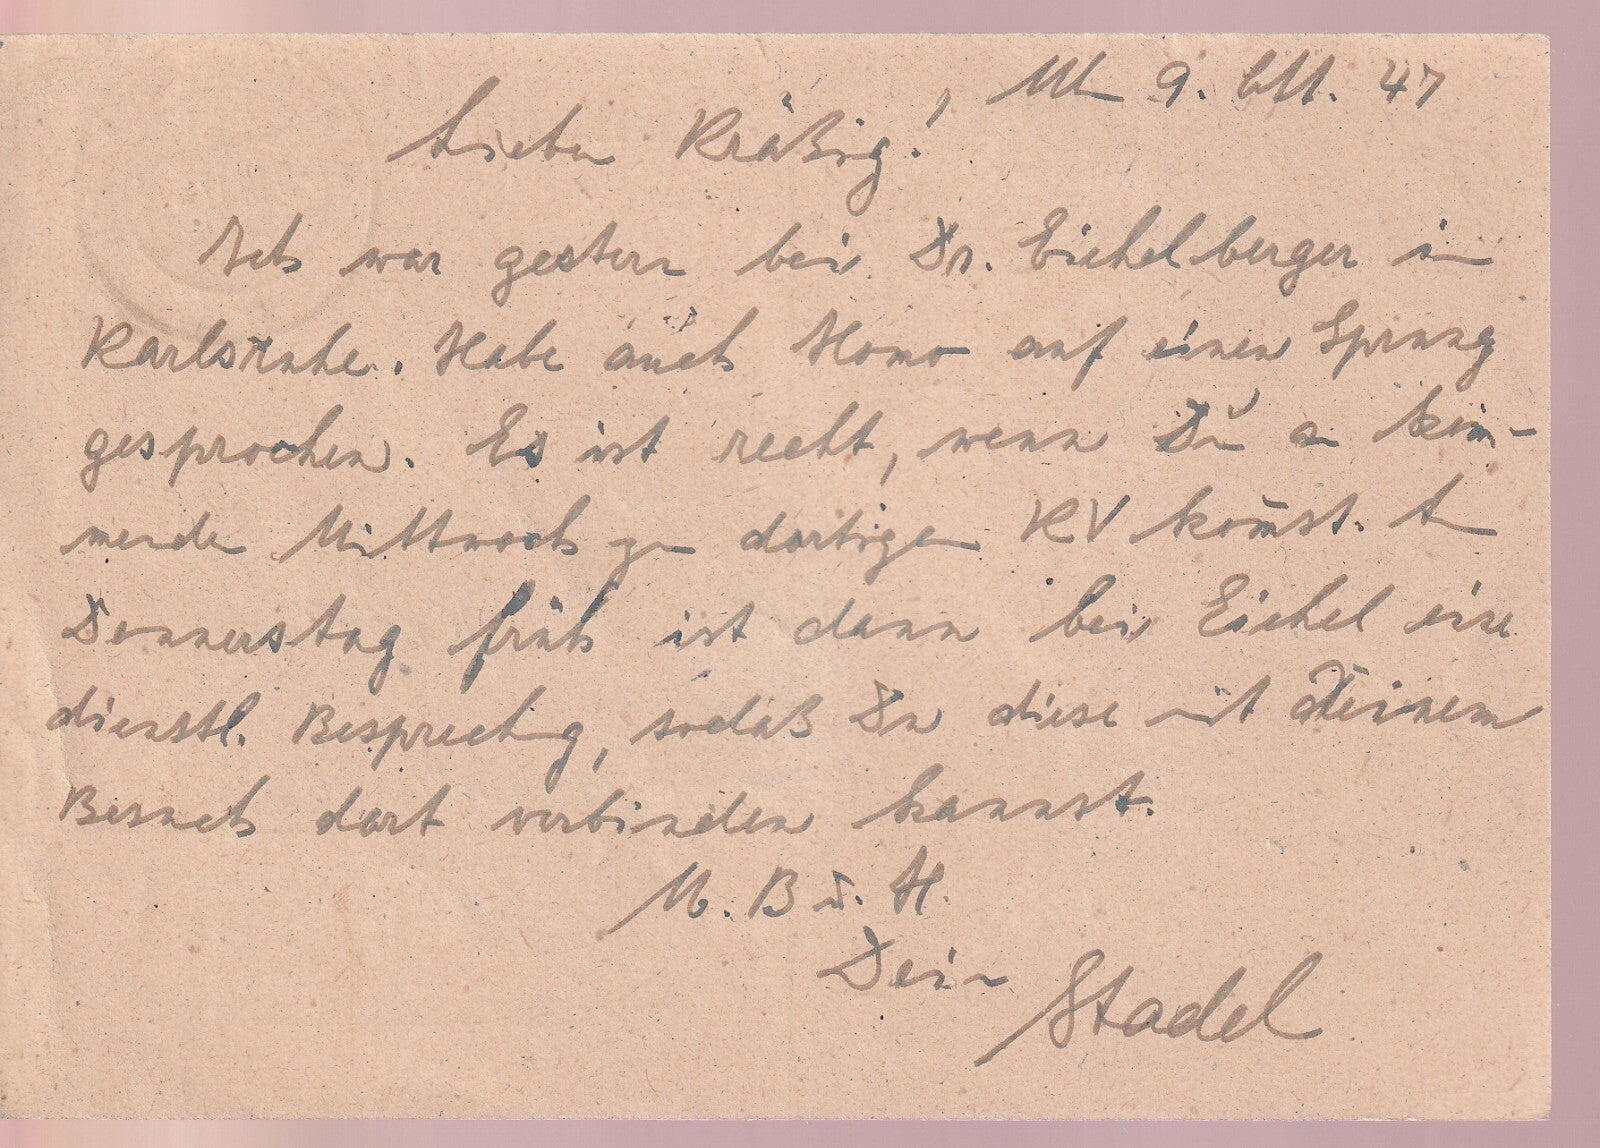 9. Okt. 47
Lieber Kräßig!
Ich war gestern bei Dr. Eichelberger in
Karlsruhe. Habe auch Homo auf einen Sprung
gesprochen. Es ist recht, wenn Du am kom-
mende Mittwoch zu dortigen KV kom̄st. Am
Donnerstag früh ist dann bei Eichel eine
dienstl. Besprechg, sodaß Du diese mit Deinem
Besuch dort verbinden kannst.
M. B u. H.
Dein Stadel